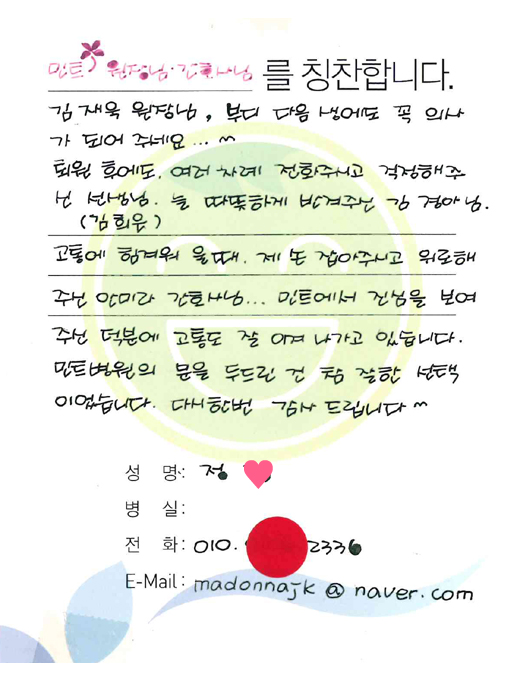 민트 원장님·간호사님 를 칭찬합니다.
김재욱 원장님, 부디 다음 생에도 꼭 의사
가 되어 주세요... ^^
퇴원 후에도, 여러 차례 전화주시고 걱정해주
신 선생님. 늘 따뜻하게 반겨주신 강 경아님.
(김희은)
고통에 힘겨워 울때. 제 손 잡아주시고 위로해
주신 안미라 간호사님... 민트에서 진심을 보여
주신 덕분에 고통도 잘 이겨 나가고 있습니다.
민트병원의 문을 두드린 건 참 잘한 선택
이었습니다. 다시한번 감사 드립니다 ^^
성 명: 정
병 실:
전 화: 010. 2336
E-Mail: madonnajk@naver.com